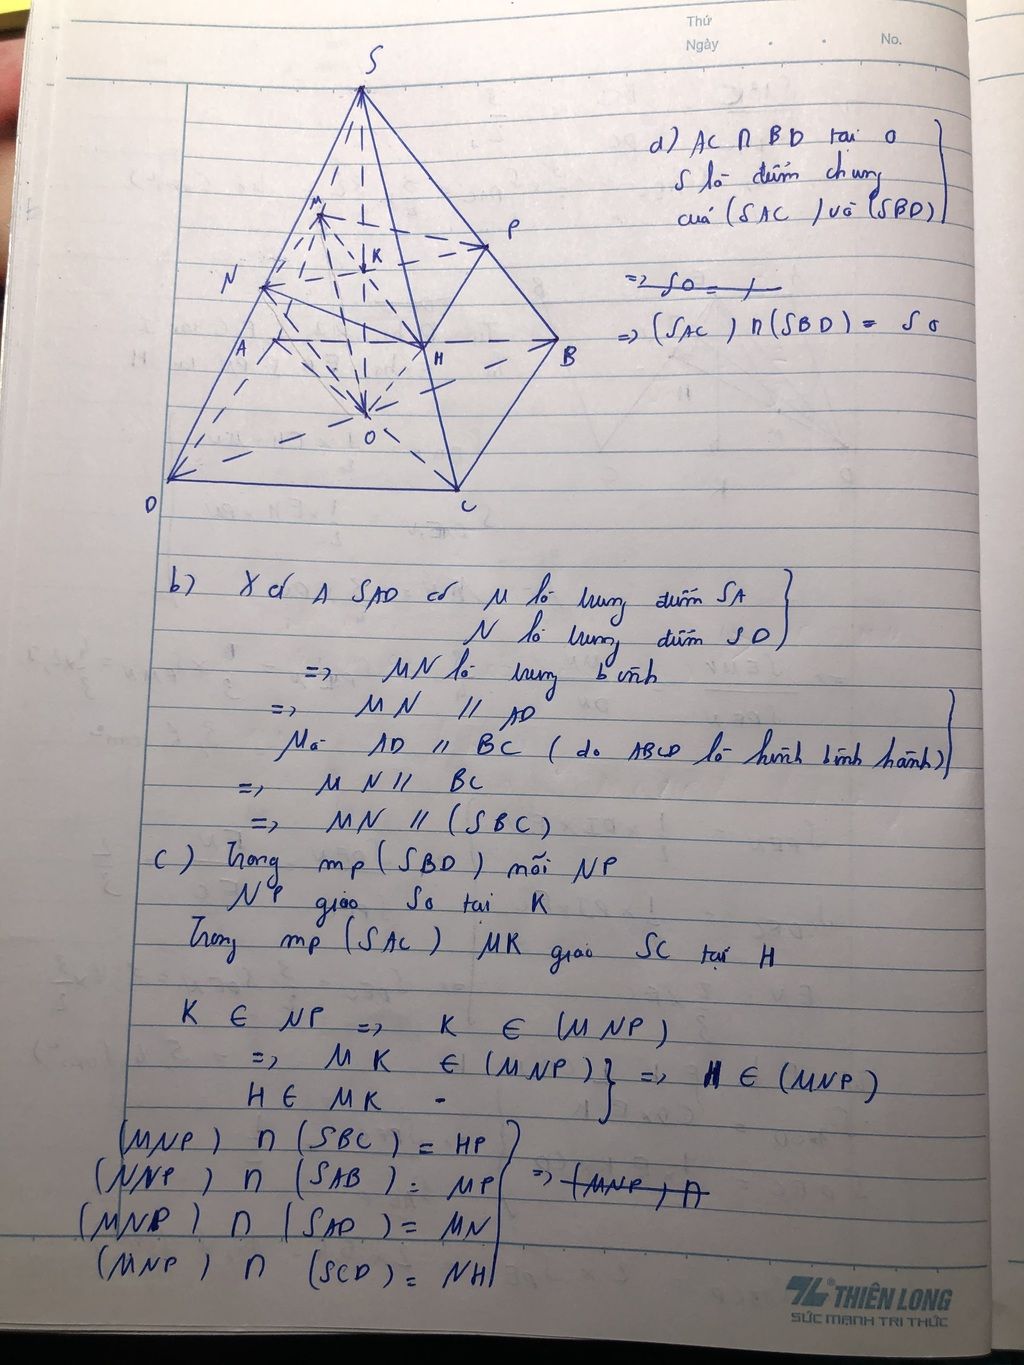 Thứ
Ngày . . No.
S
M
P
K
N
A
H
B
O
D
C
a) AC ∩ BD tại O
S là điểm chung
của (SAC) và (SBD)
=> SO =
=> (SAC) ∩ (SBD) = SO
b) Xét Δ SAD có M là trung điểm SA
N là trung điểm SD
=> MN là trung bình
=> MN // AD
Mà AD // BC (do ABCD là hình bình hành)
=> MN // BC
=> MN // (SBC)
c) Trong mp (SBD) nối NP
NP giao SO tại K
Trong mp (SAC) MK giao SC tại H
K ∈ NP => K ∈ (MNP)
=> MK ∈ (MNP) } => H ∈ (MNP)
H ∈ MK
(MNP) ∩ (SBC) = HP
(MNP) ∩ (SAB) = MP => (MNP) ∩
(MNP) ∩ (SAD) = MN
(MNP) ∩ (SCD) = NH
THIÊN LONG
SỨC MẠNH TRI THỨC